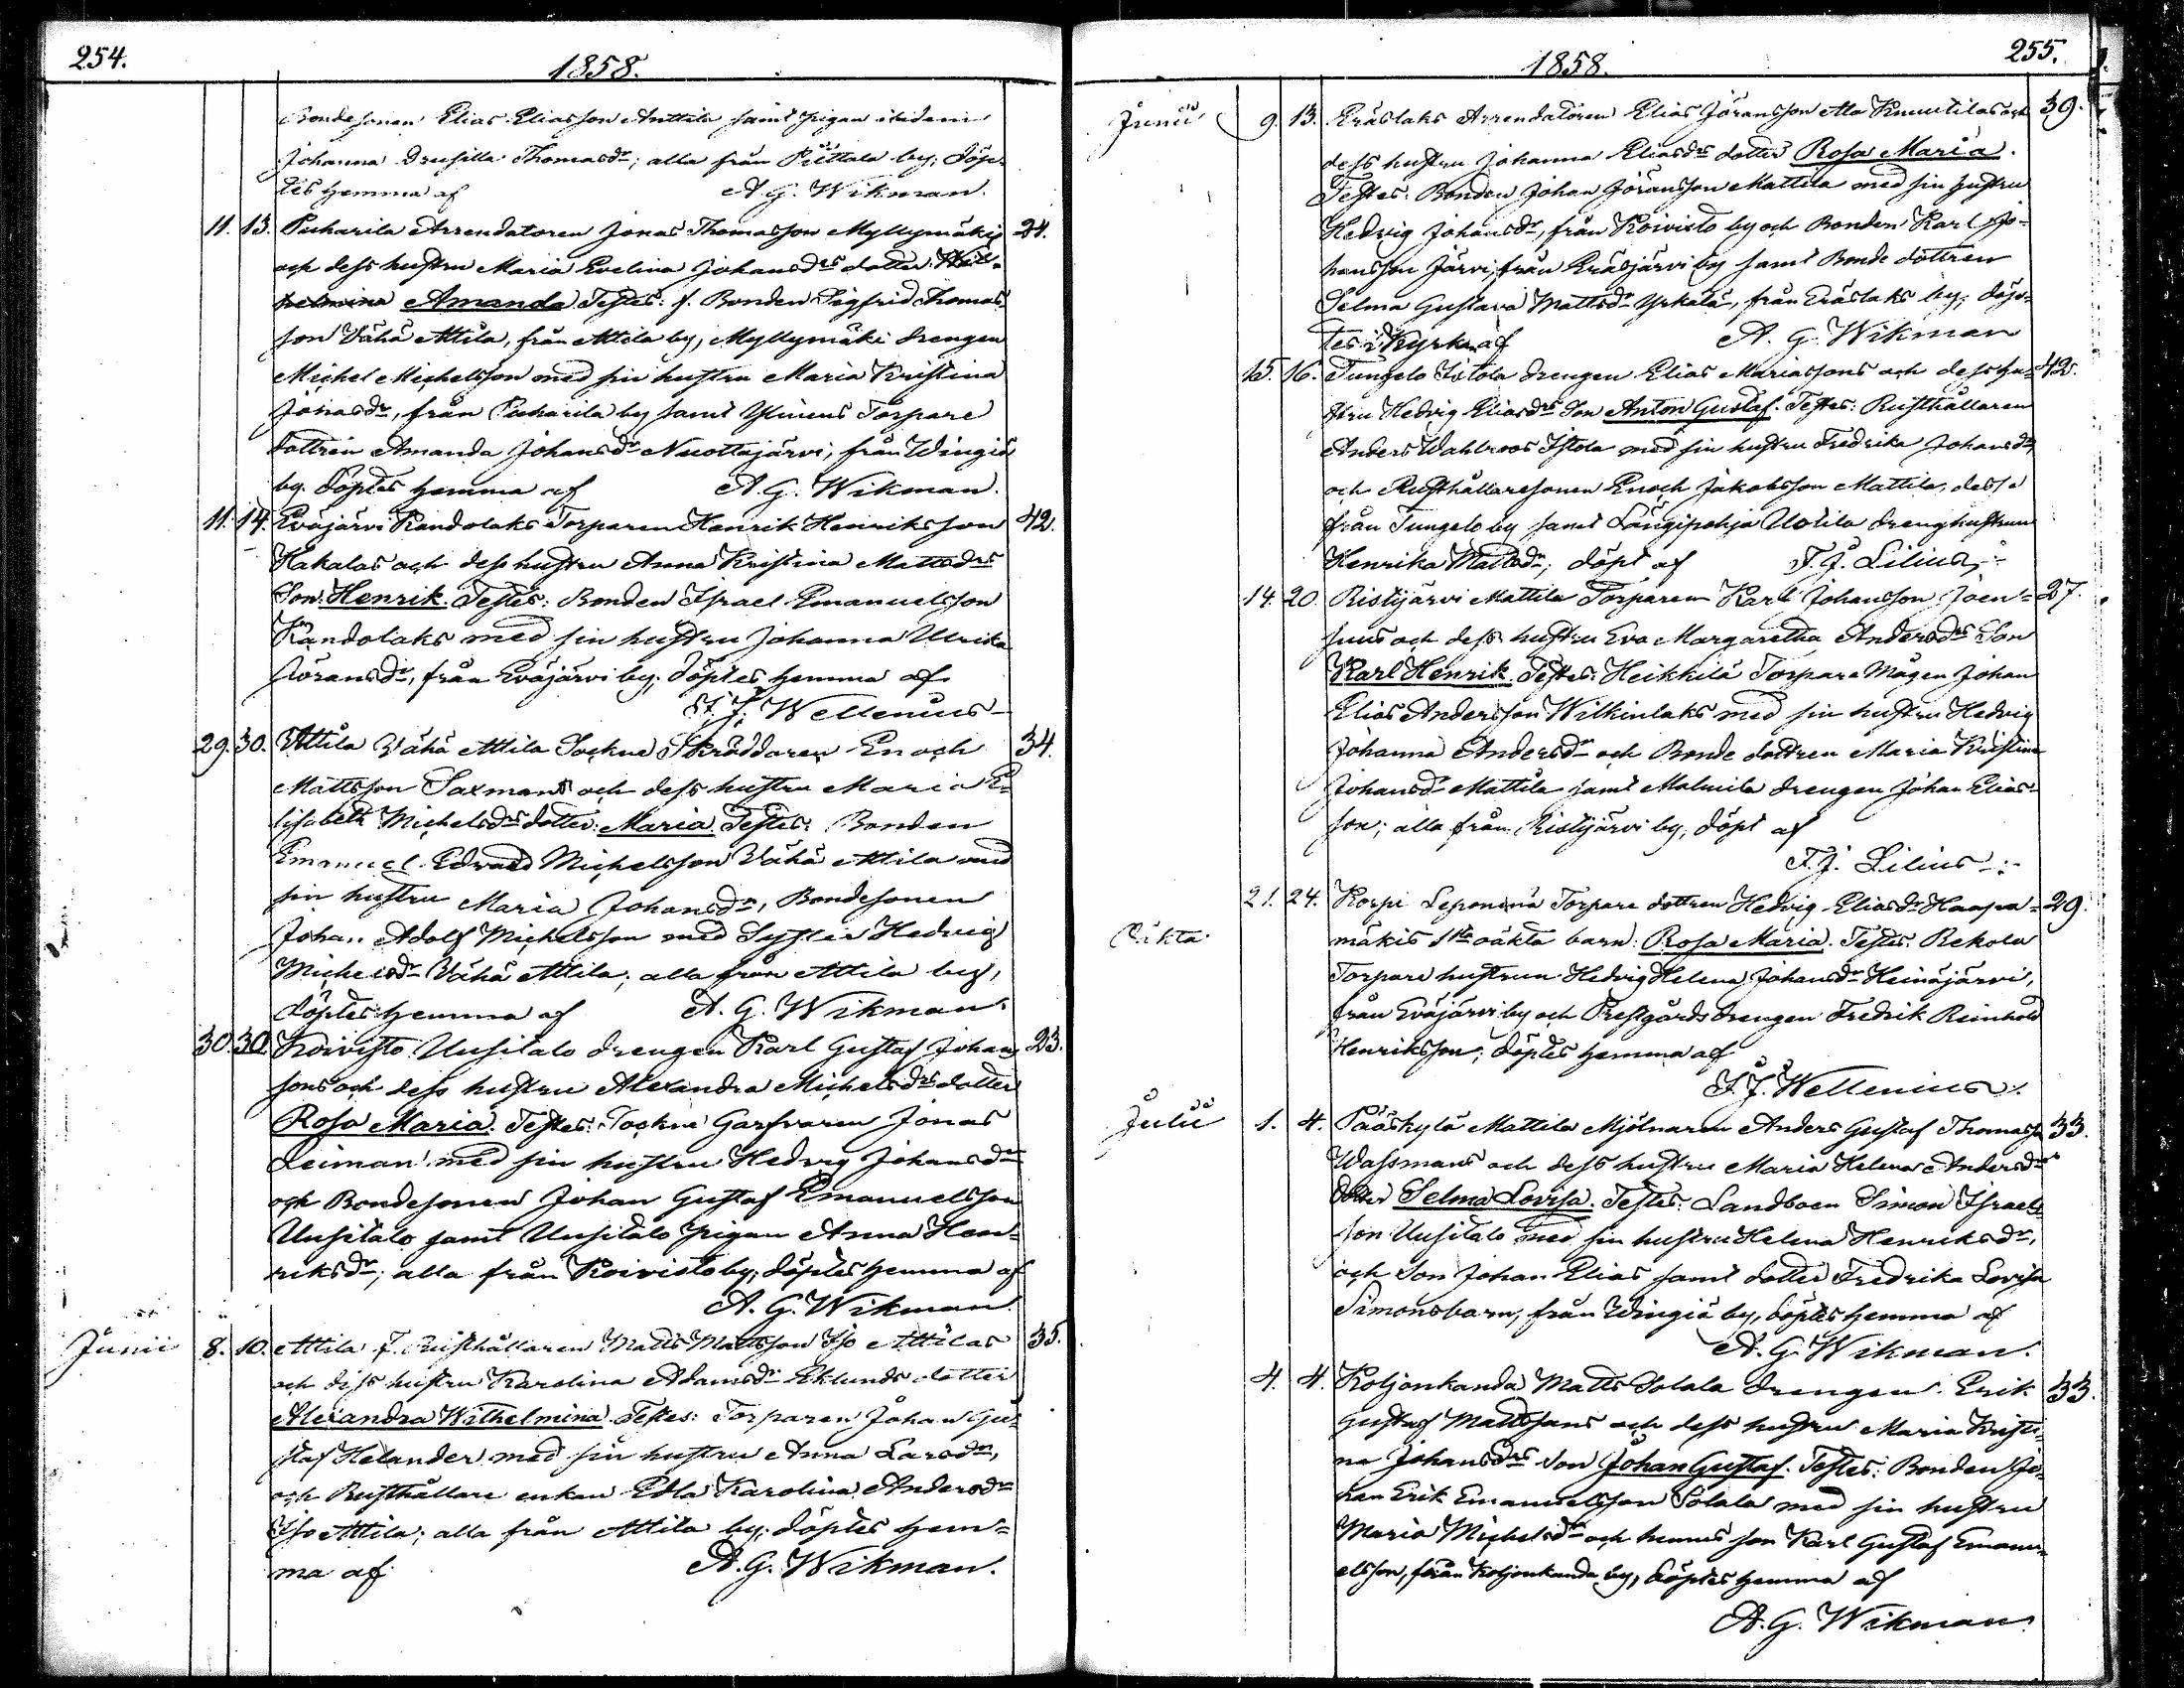 254.
1858.
Bondesonen Elias Eliasson Anttila samt pigan ibidem
Johanna Drusilla Thomasdr; alla från Piittala by; döp-
tes hemma af A. G. Wikman.
11. 13. Puharila Arrendatoren Jonas Thomasson Myllymäkis 24.
och dess hustru Maria Evelina Johansdrs dotter Wil-
helmina Amanda Testes: f. Bonden Sigfrid Thomas-
son Vähä Attila, från Attila by, Myllymäki drengen
Michel Michelsson med sin hustru Maria Kristina
Jonasdr, från Puharila by samt Ylinens Torpare
dottren Amanda Johansdr Nuottajärvi, från Wingiä
by. döptes hemma af A. G. Wikman.
11. 14. Eväjärvi Kandolaks Torparen Henrik Henriksson 42.
Hakalas och dess hustru Anna Kristina Mattsdrs
Son: Henrik. Testes: Bonden Israel Emanuelsson
Kandolaks med sin hustru Johanna Ulrika
Jöransdr, från Eväjärvi by; döptes hemma af
F. J. Wellenius
29. 30. Attila Vähä Attila Sockne Skräddaren Enoch 34.
Mattsson Saxmans och dess hustru Maria E-
lisabeth Michelsdrs dotter: Maria. Testes: Bonden
Emanuel Edvard Michelsson Vähä Attila med
sin hustru Maria Johansdr, Bondesonen
Johan Adolf Michelsson med Syster Hedvig
Michelsdr Vähä Attila; alla från Attila by;
döptes hemma af A. G. Wikman.
30. 30. Koivisto Uusitalo drengen Karl Gustaf Johans- 23.
sons och dess hustru Alexandra Michelsdrs dotter
Rosa Maria. Testes: Sockne Garfvaren Jonas
Leiman med sin hustru Hedvig Johansdr
och Bondesonen Johan Gustaf Emanuelsson
Uusitalo samt Uusitalo pigan Anna Hen-
riksdr; alla från Koivisto by; döptes hemma af
A. G. Wikman.
Junii 8. 10. Attila f. Rusthållaren Matts Mattsson Iso Attilas 35.
och dess hustru Karolina Adamsdr Eklunds dotter
Alexandra Wilhelmina. Testes: Torparen Johan Gu-
staf Helander med sin hustru Anna Larsdr,
och Rusthållare enkan Edla Karolina Andersdr
Iso Attila; alla från Attila by; döptes hem-
ma af A. G. Wikman.
1858.
255.
Junii 9. 13. Eräslaks Arrendatoren Elias Jöransson Ala Knuutilas och 39.
dess hustru Johanna Eliasdrs dotter Rosa Maria.
Testes: Bonden Johan Jöransson Mattila med sin hustru
Hedvig Johansdr, från Koivisto by och Bonden Karl Jo-
hansson Järvi, från Eräsjärvi by samt Bonde dottren
Selma Gustava Mattsdr Yrkälä, från Eräslaks by; döp-
tes i Kyrkan af A. G. Wikman
15. 16. Tungelo Sitola drengen Elias Mariassons och dess hu- 42.
stru Hedvig Eliasdrs Son Anton Gustaf. Testes: Rusthållaren
Anders Wahlroos Istola med sin hustru Fredrika Johansdr,
och Rusthållaresonen Enoch Jakobsson Mattila, dessa
från Tungelo by samt Längipohja Uotila drenghustrun
Henrika Mattsdr; döpt af F. J. Lilius
14. 20. Ristijärvi Mattila Torparen Karl Johansson Joen- 27.
suus och dess hustru Eva Margaretha Andersdrs Son
Karl Henrik. Testes: Heikkilä Torpare Mågen Johan
Elias Andersson Wilkinlaks med sin hustru Hedvig
Johanna Andersdr och Bonde dottren Maria Kristina
Johansdr Mattila samt Malmila drengen Johan Elias-
son; alla från Ristijärvi by; döpt af
F. J. Lilius
Oäkta 21. 24. Korpi Seponina Torpare dottren Hedvig Eliasdr Haapa- 29.
mäkis 1sta oäkta barn: Rosa Maria. Testes: Rekola
Torpare hustrun Hedvig Helena Johansdr Heinäjärvi,
från Eväjärvi by och Prestgårds drengen Fredrik Reinhold
Henriksson; döptes hemma af
F. J. Wellenius.
Julii 1. 4. Pääskylä Mattila Mjölnaren Anders Gustaf Thomasson 33.
Wassmans och dess hustru Maria Helena Andersdrs
dotter Selma Lovisa. Testes: Landboen Simon Israels-
son Uusitalo med sin hustru Helena Henriksdr,
och Son Johan Elias samt dotter Fredrika Lovisa
Simonsbarn, från Wingiä by, döptes hemma af
A. G. Wikman.
4. 4. Koljonkanda Matts Solala drengen Erik 33.
Gustaf Mattssons och dess hustru Maria Kristi-
na Johansdrs Son Johan Gustaf. Testes: Bonden Jo-
han Erik Emanuelsson Solala med sin hustru
Maria Michelsdr och hennes son Karl Gustaf Emanu-
elsson, från Koljonkanda by, döptes hemma af
A. G. Wikman.